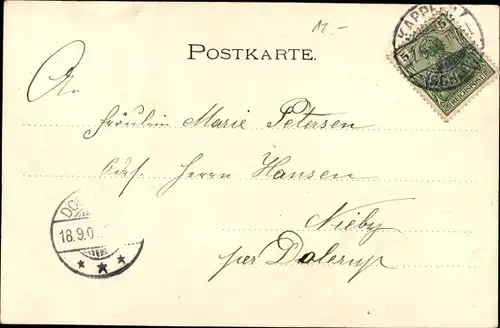 12.-
POSTKARTE.
KAPPELN
5
REICHSPOST
An
Fräulein Marie Petersen
Adr. Herrn Hansen
Nieby
per Dolerup
DO
18.9.0